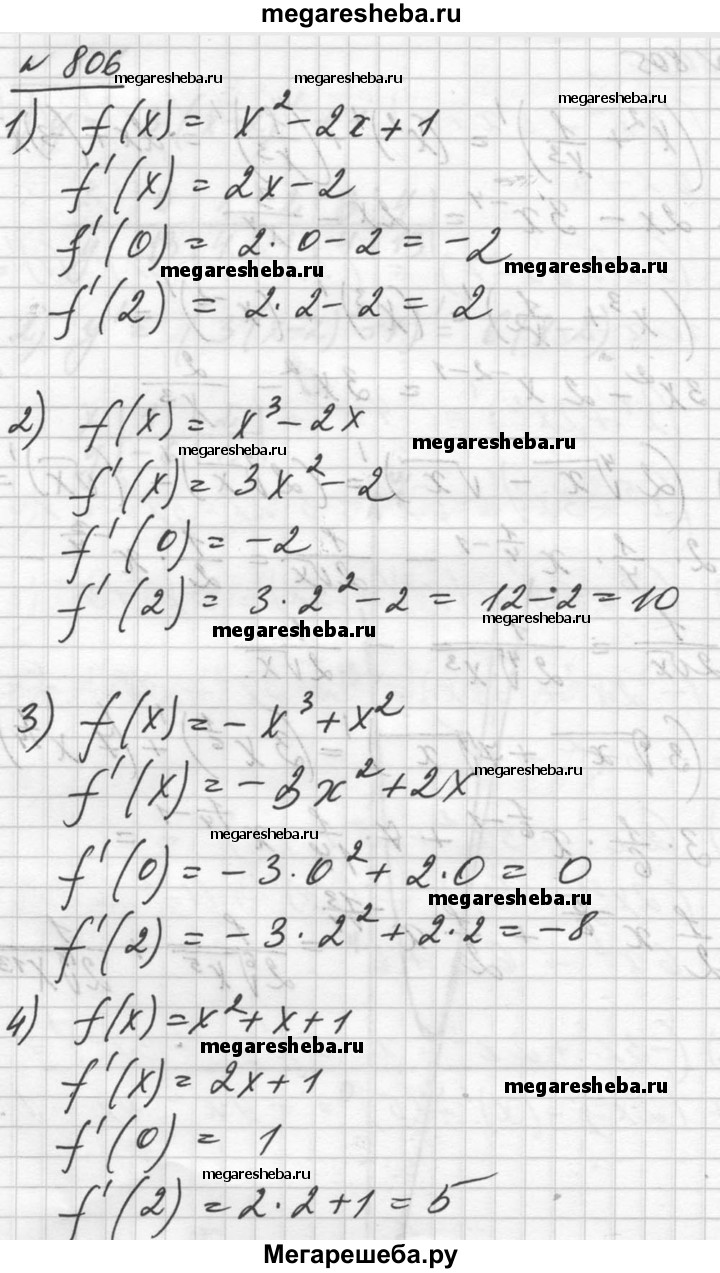 megaresheba.ru
№ 806
megaresheba.ru megaresheba.ru
megaresheba.ru
1) f(x) = x² - 2x + 1
f'(x) = 2x - 2
f'(0) = 2·0 - 2 = -2
megaresheba.ru megaresheba.ru
f'(2) = 2·2 - 2 = 2
2) f(x) = x³ - 2x
megaresheba.ru megaresheba.ru
f'(x) = 3x² - 2
f'(0) = -2
f'(2) = 3·2² - 2 = 12 - 2 = 10
megaresheba.ru megaresheba.ru
3) f(x) = -x³ + x²
f'(x) = -3x² + 2x
megaresheba.ru
megaresheba.ru
f'(0) = -3·0² + 2·0 = 0
megaresheba.ru
f'(2) = -3·2² + 2·2 = -8
4) f(x) = x² + x + 1
megaresheba.ru
f'(x) = 2x + 1
megaresheba.ru
f'(0) = 1
megaresheba.ru
f'(2) = 2·2 + 1 = 5
Мегарешеба.ру